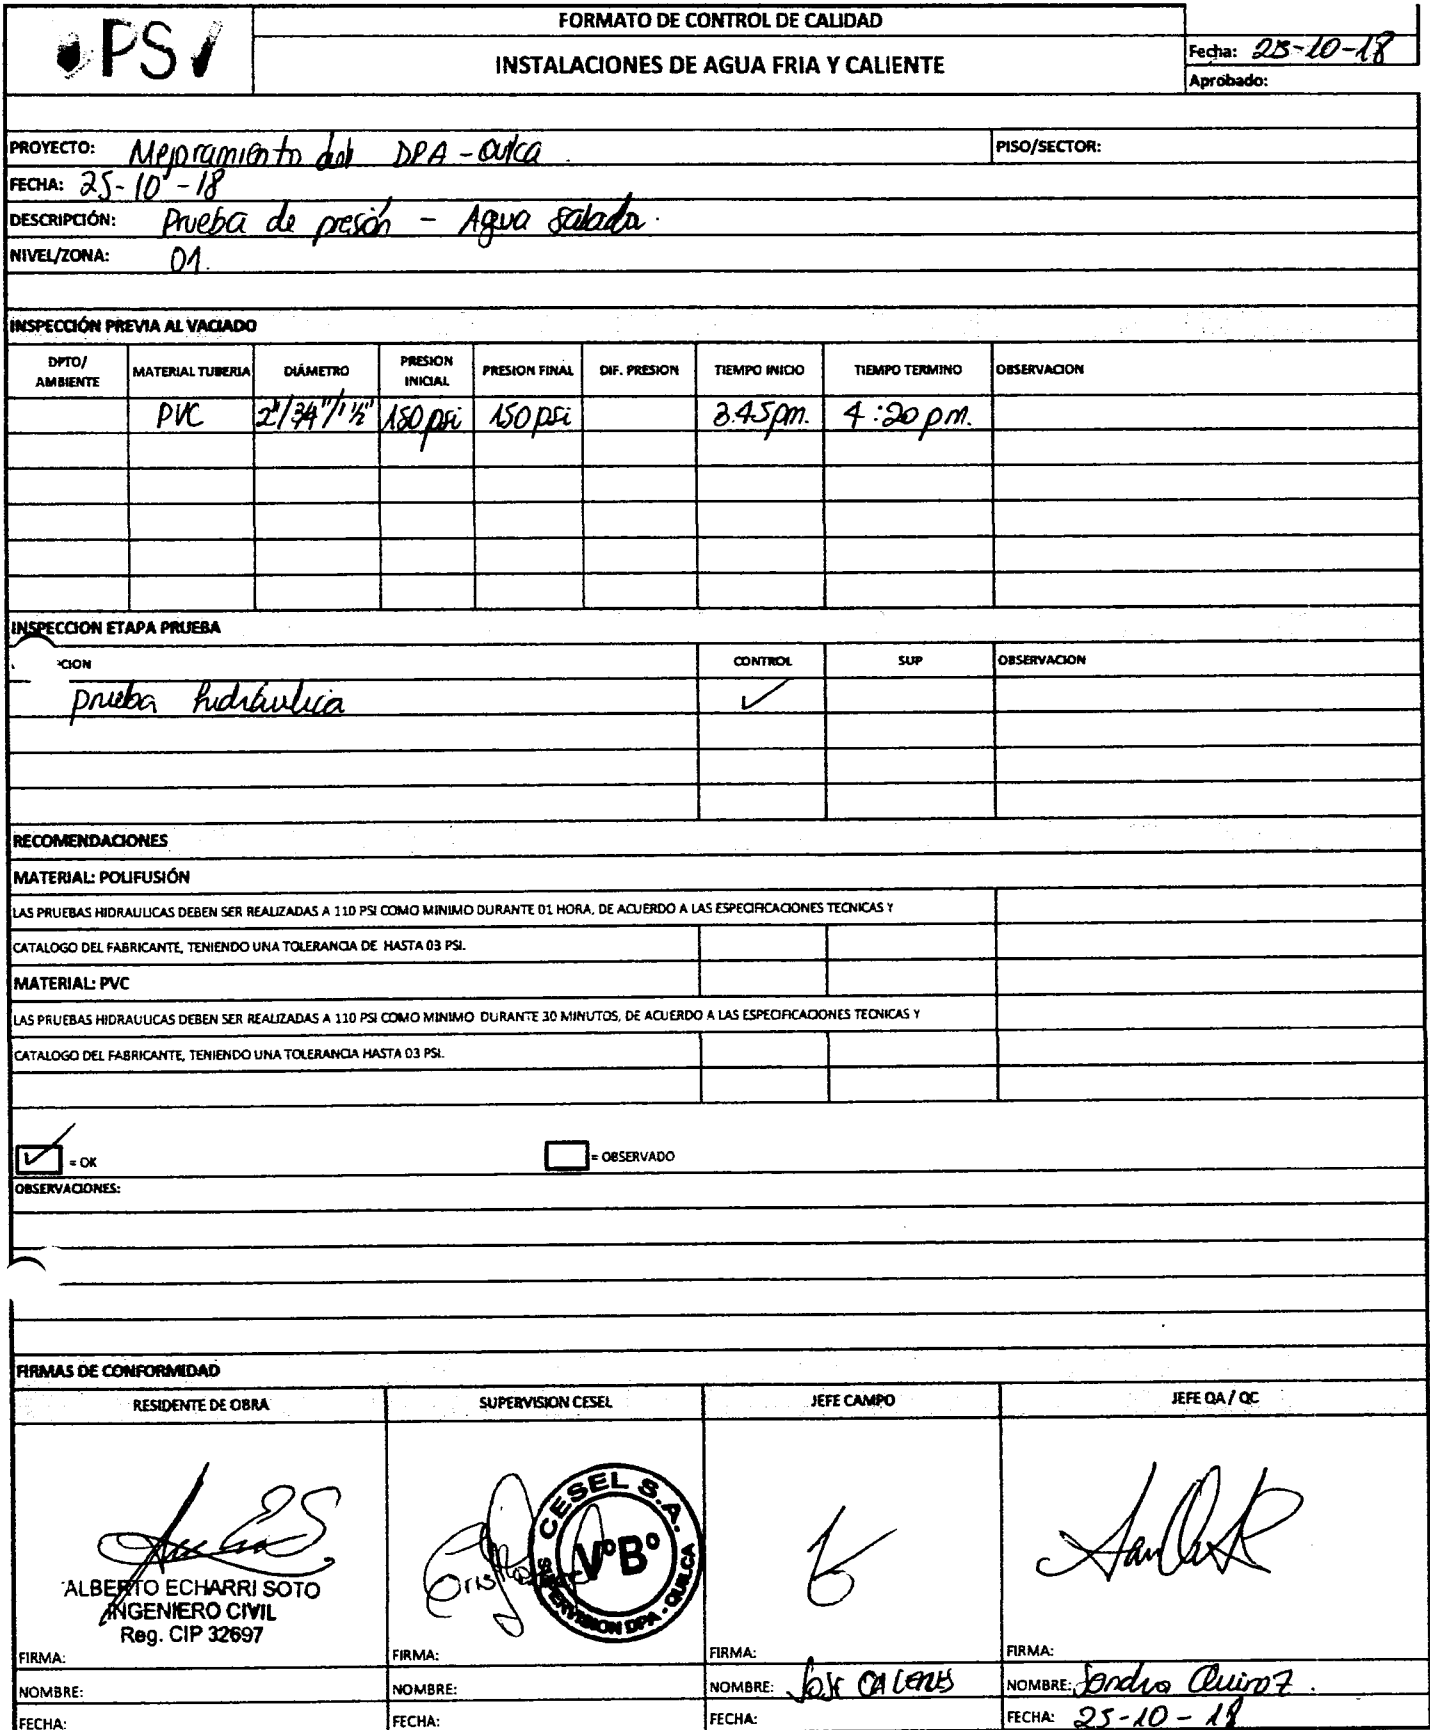 PS
FORMATO DE CONTROL DE CALIDAD
INSTALACIONES DE AGUA FRIA Y CALIENTE
Fecha: 25-10-18
Aprobado:
PROYECTO: Mejoramiento del DPA - Quilca
PISO/SECTOR:
FECHA: 25-10-18
DESCRIPCIÓN: Prueba de presión - Agua salada.
NIVEL/ZONA: 01.
INSPECCIÓN PREVIA AL VACIADO
DPTO/ AMBIENTE MATERIAL TUBERIA DIÁMETRO PRESION INICIAL PRESION FINAL DIF. PRESION TIEMPO INICIO TIEMPO TERMINO OBSERVACION
PVC 2"/3/4"/1 1/2" 150 psi 150 psi 3.45pm. 4:20 pm.
INSPECCION ETAPA PRUEBA
CION CONTROL SUP OBSERVACION
prueba hidráulica ✓
RECOMENDACIONES
MATERIAL: POLIFUSIÓN
LAS PRUEBAS HIDRAULICAS DEBEN SER REALIZADAS A 110 PSI COMO MINIMO DURANTE 01 HORA, DE ACUERDO A LAS ESPECIFICACIONES TECNICAS Y
CATALOGO DEL FABRICANTE, TENIENDO UNA TOLERANCIA DE HASTA 03 PSI.
MATERIAL: PVC
LAS PRUEBAS HIDRAULICAS DEBEN SER REALIZADAS A 110 PSI COMO MINIMO DURANTE 30 MINUTOS, DE ACUERDO A LAS ESPECIFICACIONES TECNICAS Y
CATALOGO DEL FABRICANTE, TENIENDO UNA TOLERANCIA HASTA 03 PSI.
✓ = OK
= OBSERVADO
OBSERVACIONES:
FIRMAS DE CONFORMIDAD
RESIDENTE DE OBRA SUPERVISION CESEL JEFE CAMPO JEFE QA / QC
ALBERTO ECHARRI SOTO
INGENIERO CIVIL
Reg. CIP 32697
CESEL S.A.
V°B°
SUPERVISION DPA - QUILCA
FIRMA: FIRMA: FIRMA: FIRMA:
NOMBRE: NOMBRE: NOMBRE: José NOMBRE: Sandra Quiroz.
FECHA: FECHA: FECHA: FECHA: 25-10-18